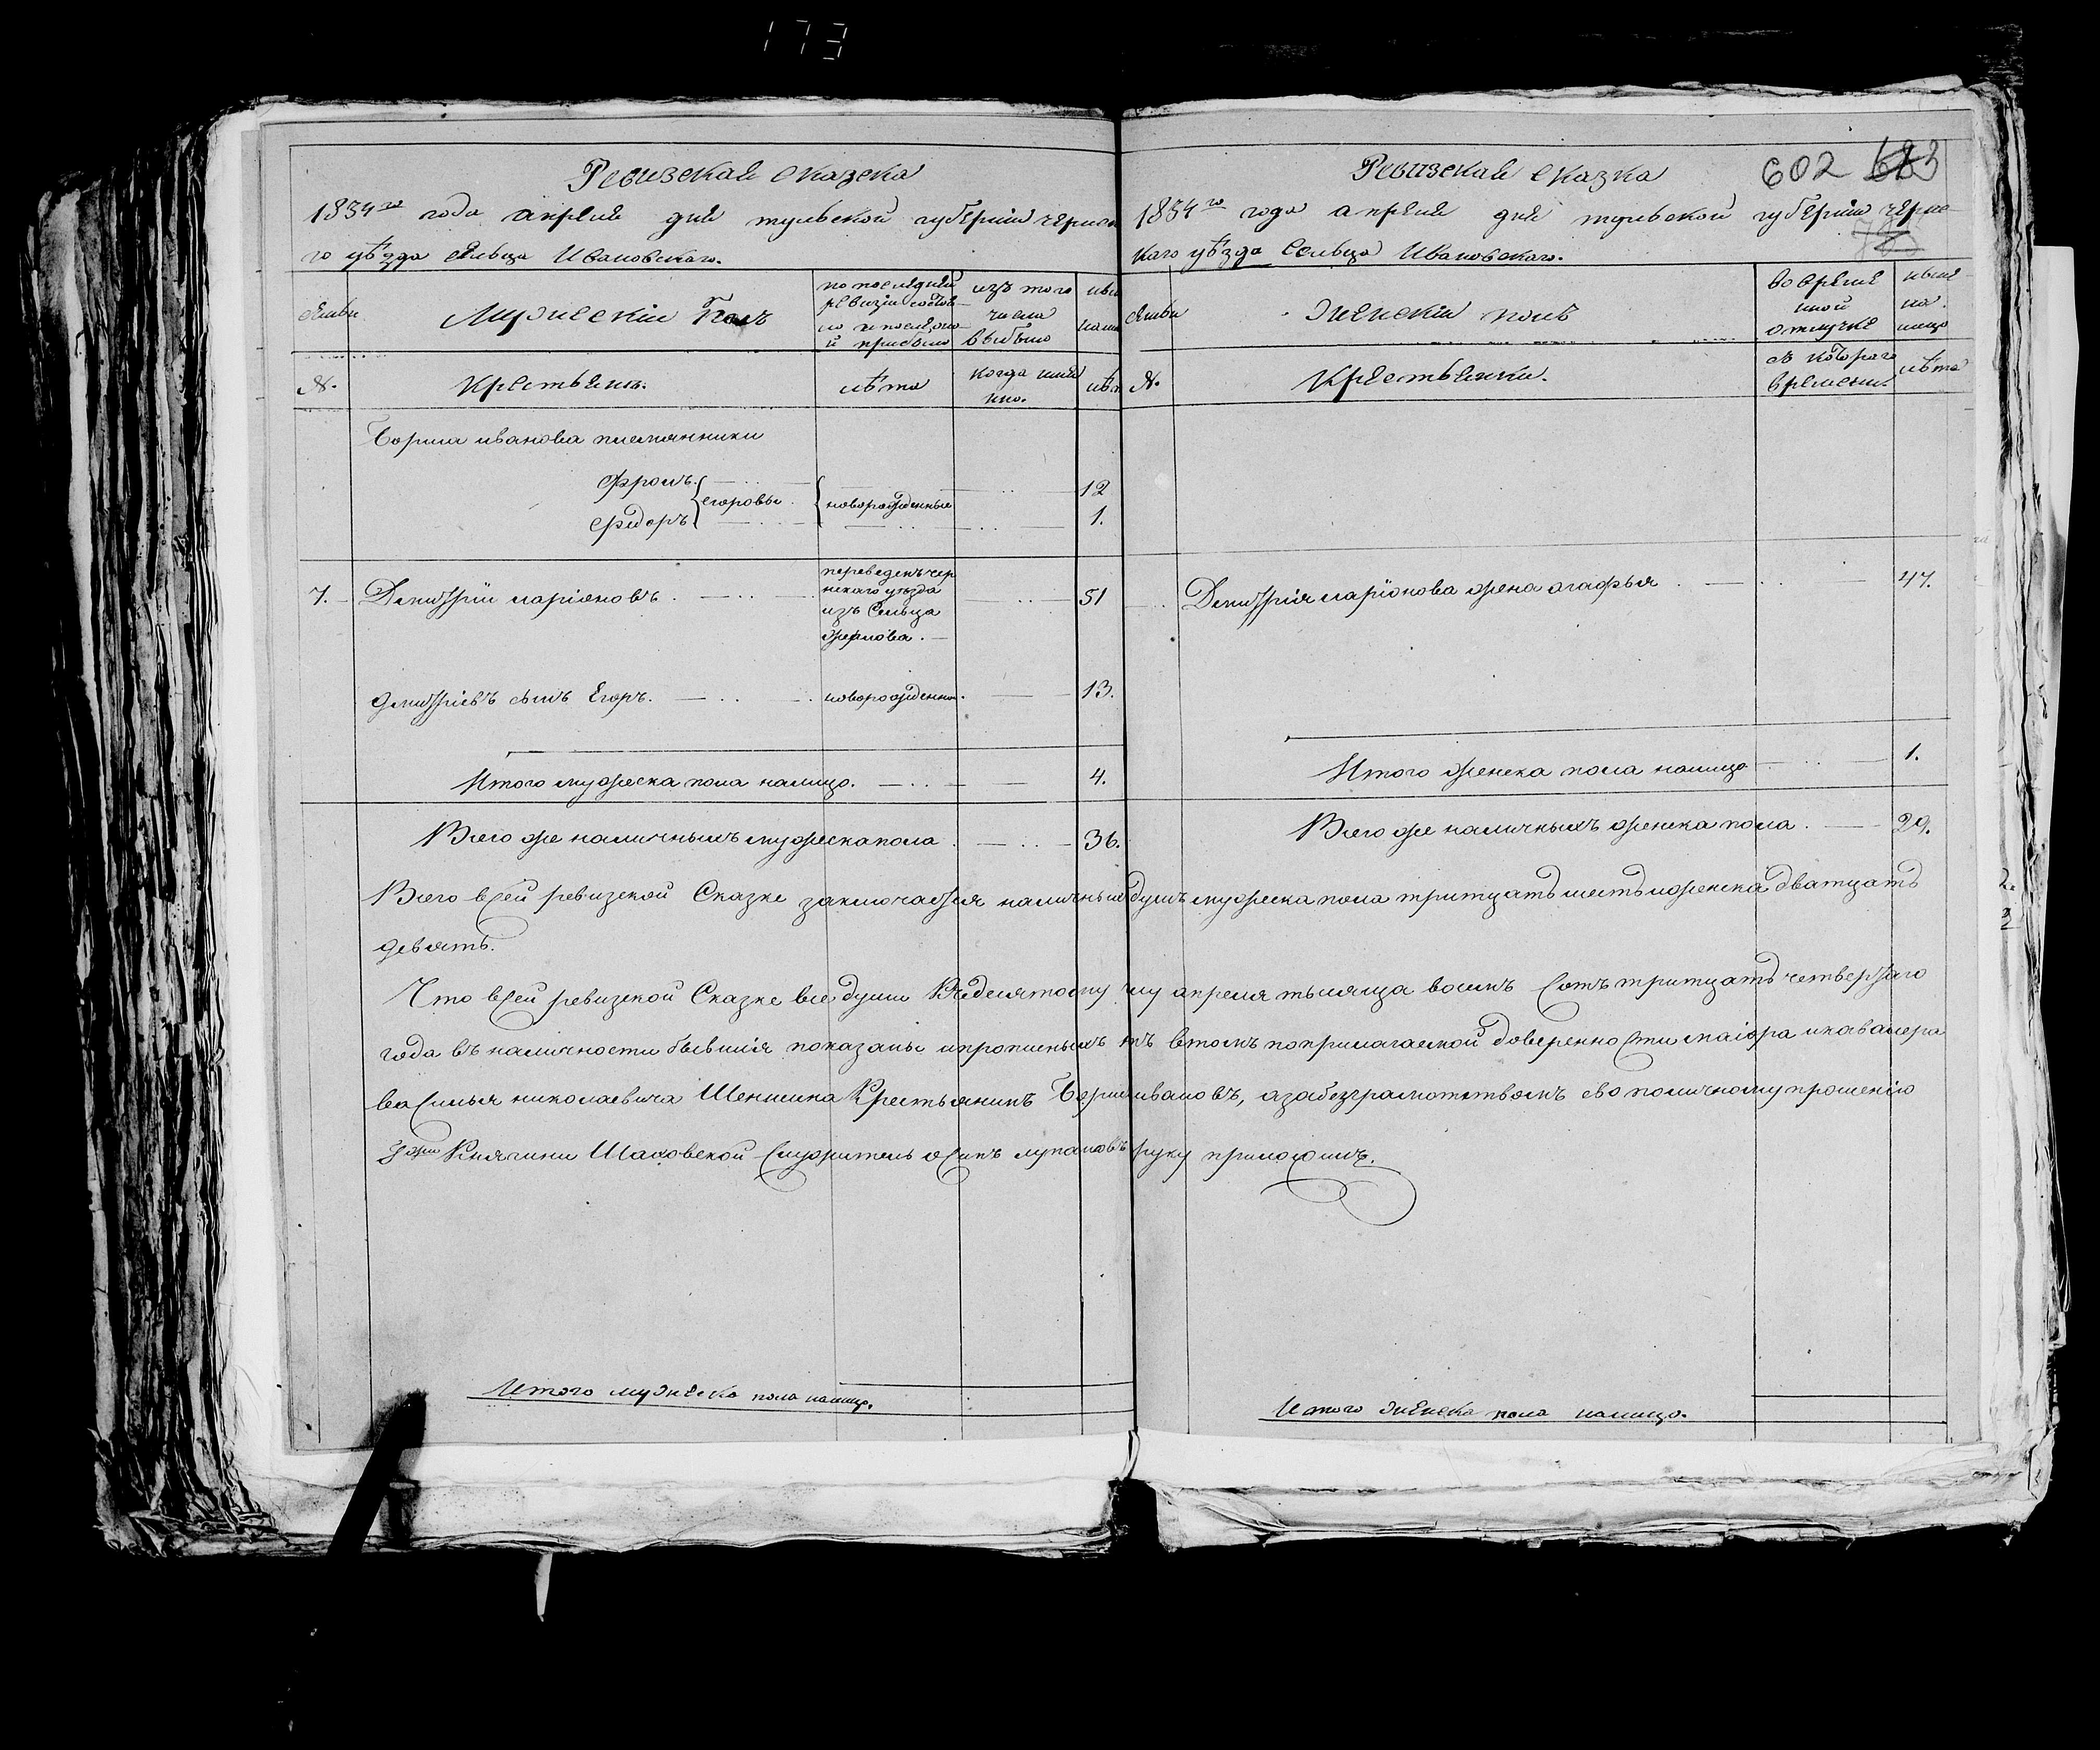 173
Ревизская сказска
1834го года апреля дня тульской губернiи чернска
го уѣзда сельца Ивановскаго.
Семьи
Мужескiй Полъ
по последней ревизiи состоя
ло и после оно
й прибыло
изъ того
числа
выбыло
ны
нали
№.
Крестьяне.
лѣта
когда имян
но.
лѣт
Борила иванова племянники
Фролъ
Федоръ
егоровы
новорожденные
12
1.
7.
Дмитрiй ларiоновъ.
переведенъ чер
нскаго уезда
изъ Сельца
51
дмитрiевъ сынъ Егоръ.
новорожденной.
13.
Итого мужеска пола налицо.
4.
Всего же наличныхъ мужеска пола
36.
Ревизская сказка
602
1834го года апреля дня тульской губернiи чернс
каго уѣзда Сельца Ивановскаго.
Семьи
Женскiй полъ
во време
нной
отлучке
ныне
на
лицо
№.
Крестьянки.
съ котораго
времени.
лѣта
Дмитрiя ларiонова жена агафья
47.
Итого женска пола налицо
1.
Всего же наличныхъ женска пола.
29.
Всего всей ревизской Сказке заключается наличныхъ душъ мужеска пола тритцать шесть иженска дватцать
девять.
Что всей ревизской Сказке все души апреля тысяща восемь сотъ тритцать четвертаго
года въ наличности бывшiя показаны ипрописныхъ нѣтъ втомъ поприлагаемой доверенности маiора икавалера
василья николаевича Шеншина Крестьянинъ ивановъ, азабезграмотствомъ ево поличному прошенiю
Княгини Шаховской Служитель осипъ руку приложилъ.
Итого мужеска пола налицо.
Итого женска пола налицо.